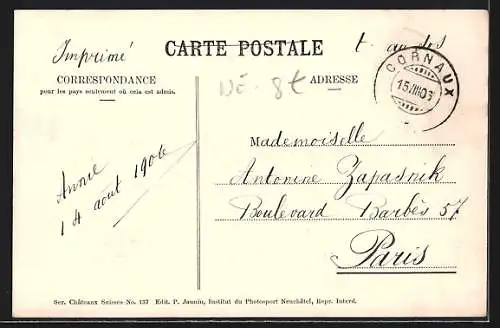 Imprimé
CARTE POSTALE
t. au dos
CORRESPONDANCE
pour les pays seulement où cela est admis.
ADRESSE
NE - 8€
CORNAUX
15.VIII.06
Mademoiselle
Antonine Zapasnik
Boulevard Barbès 57
Paris
Annie
14 août 1906
Ser. Châteaux Suisses No. 137 Edit. P. Jaunin, Institut du Photosport Neuchâtel, Repr. Interd.